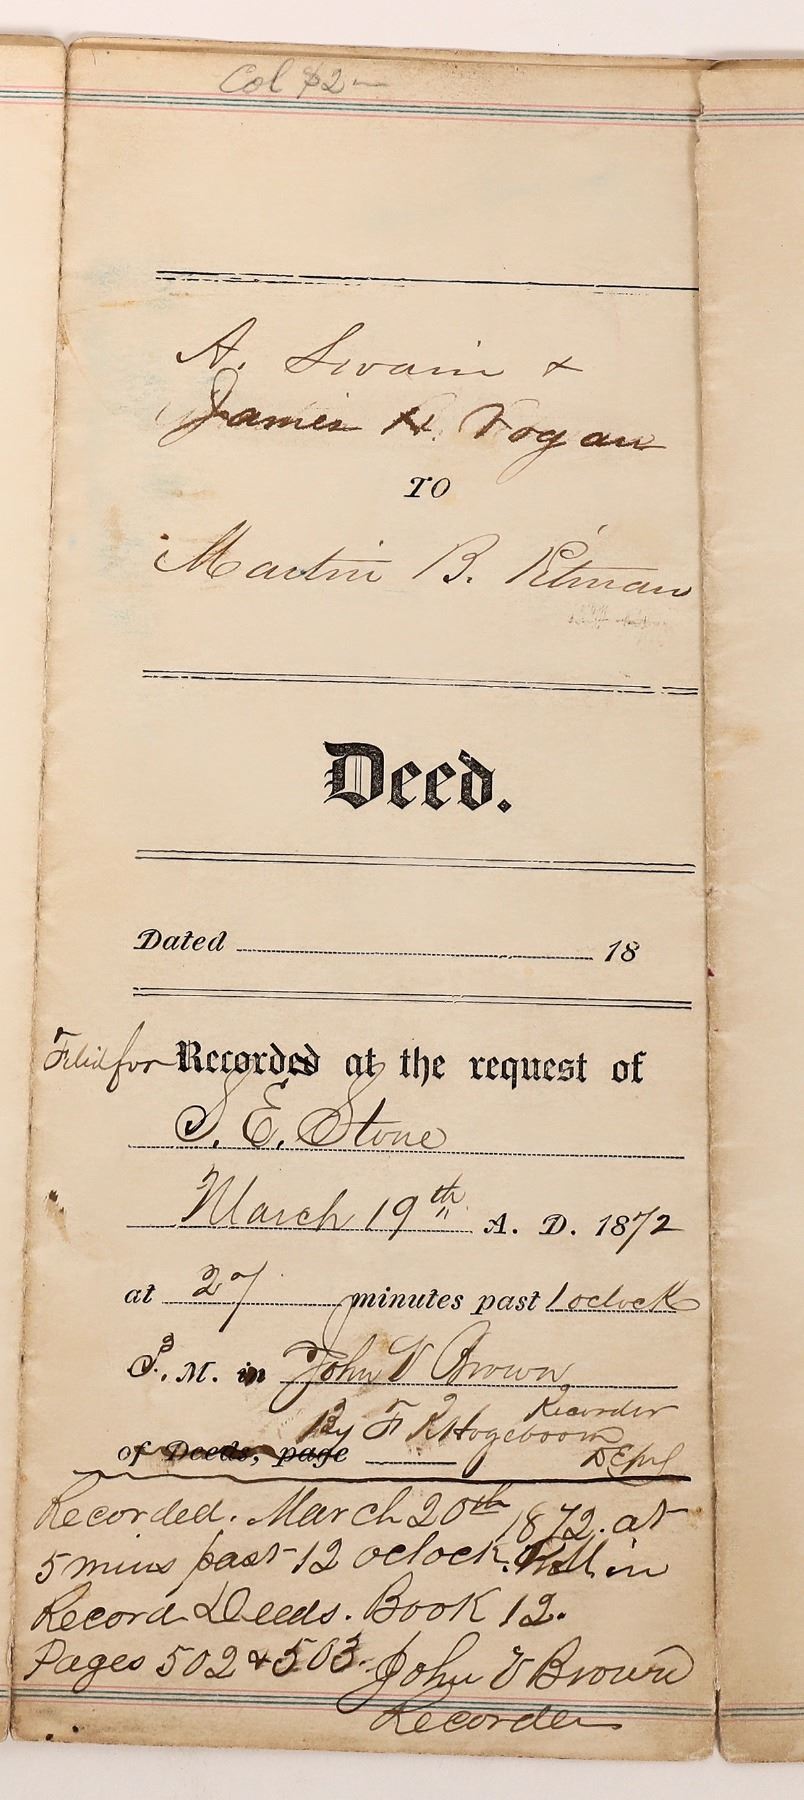 Col $2-
A. Swain &
James H. Vogan
TO
Martin B. Etman
Deed.
Dated 18
Filed for Recorded at the request of
S. E. Stone
March 19th A. D. 1872
at 27 minutes past 1 oclock
P. M. in John V Brown
Recorder
By F Hogeboom
of Deeds, page Depy
Recorded. March 20th 1872. at
5 mins past 12 oclock. P.M. in
Record Deeds. Book 12.
Pages 502 & 503. John V Brown
Recorder